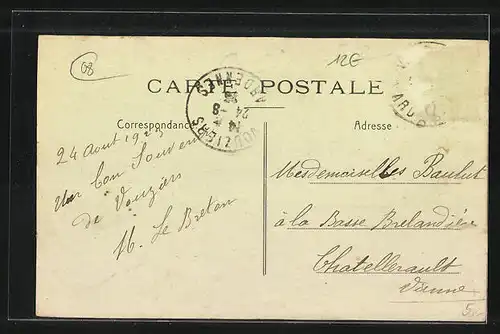 08
12E
CARTE POSTALE
VOUZIERS
ARDENNES
14
24 - 8
ARD
Correspondance
Adresse
24 Aout 1923
Un bon Souvenir
de Vouziers
M. Le Breton
Mesdemoiselles Bautut
à la Basse Brelandière
Chatellerault
Vienne
5